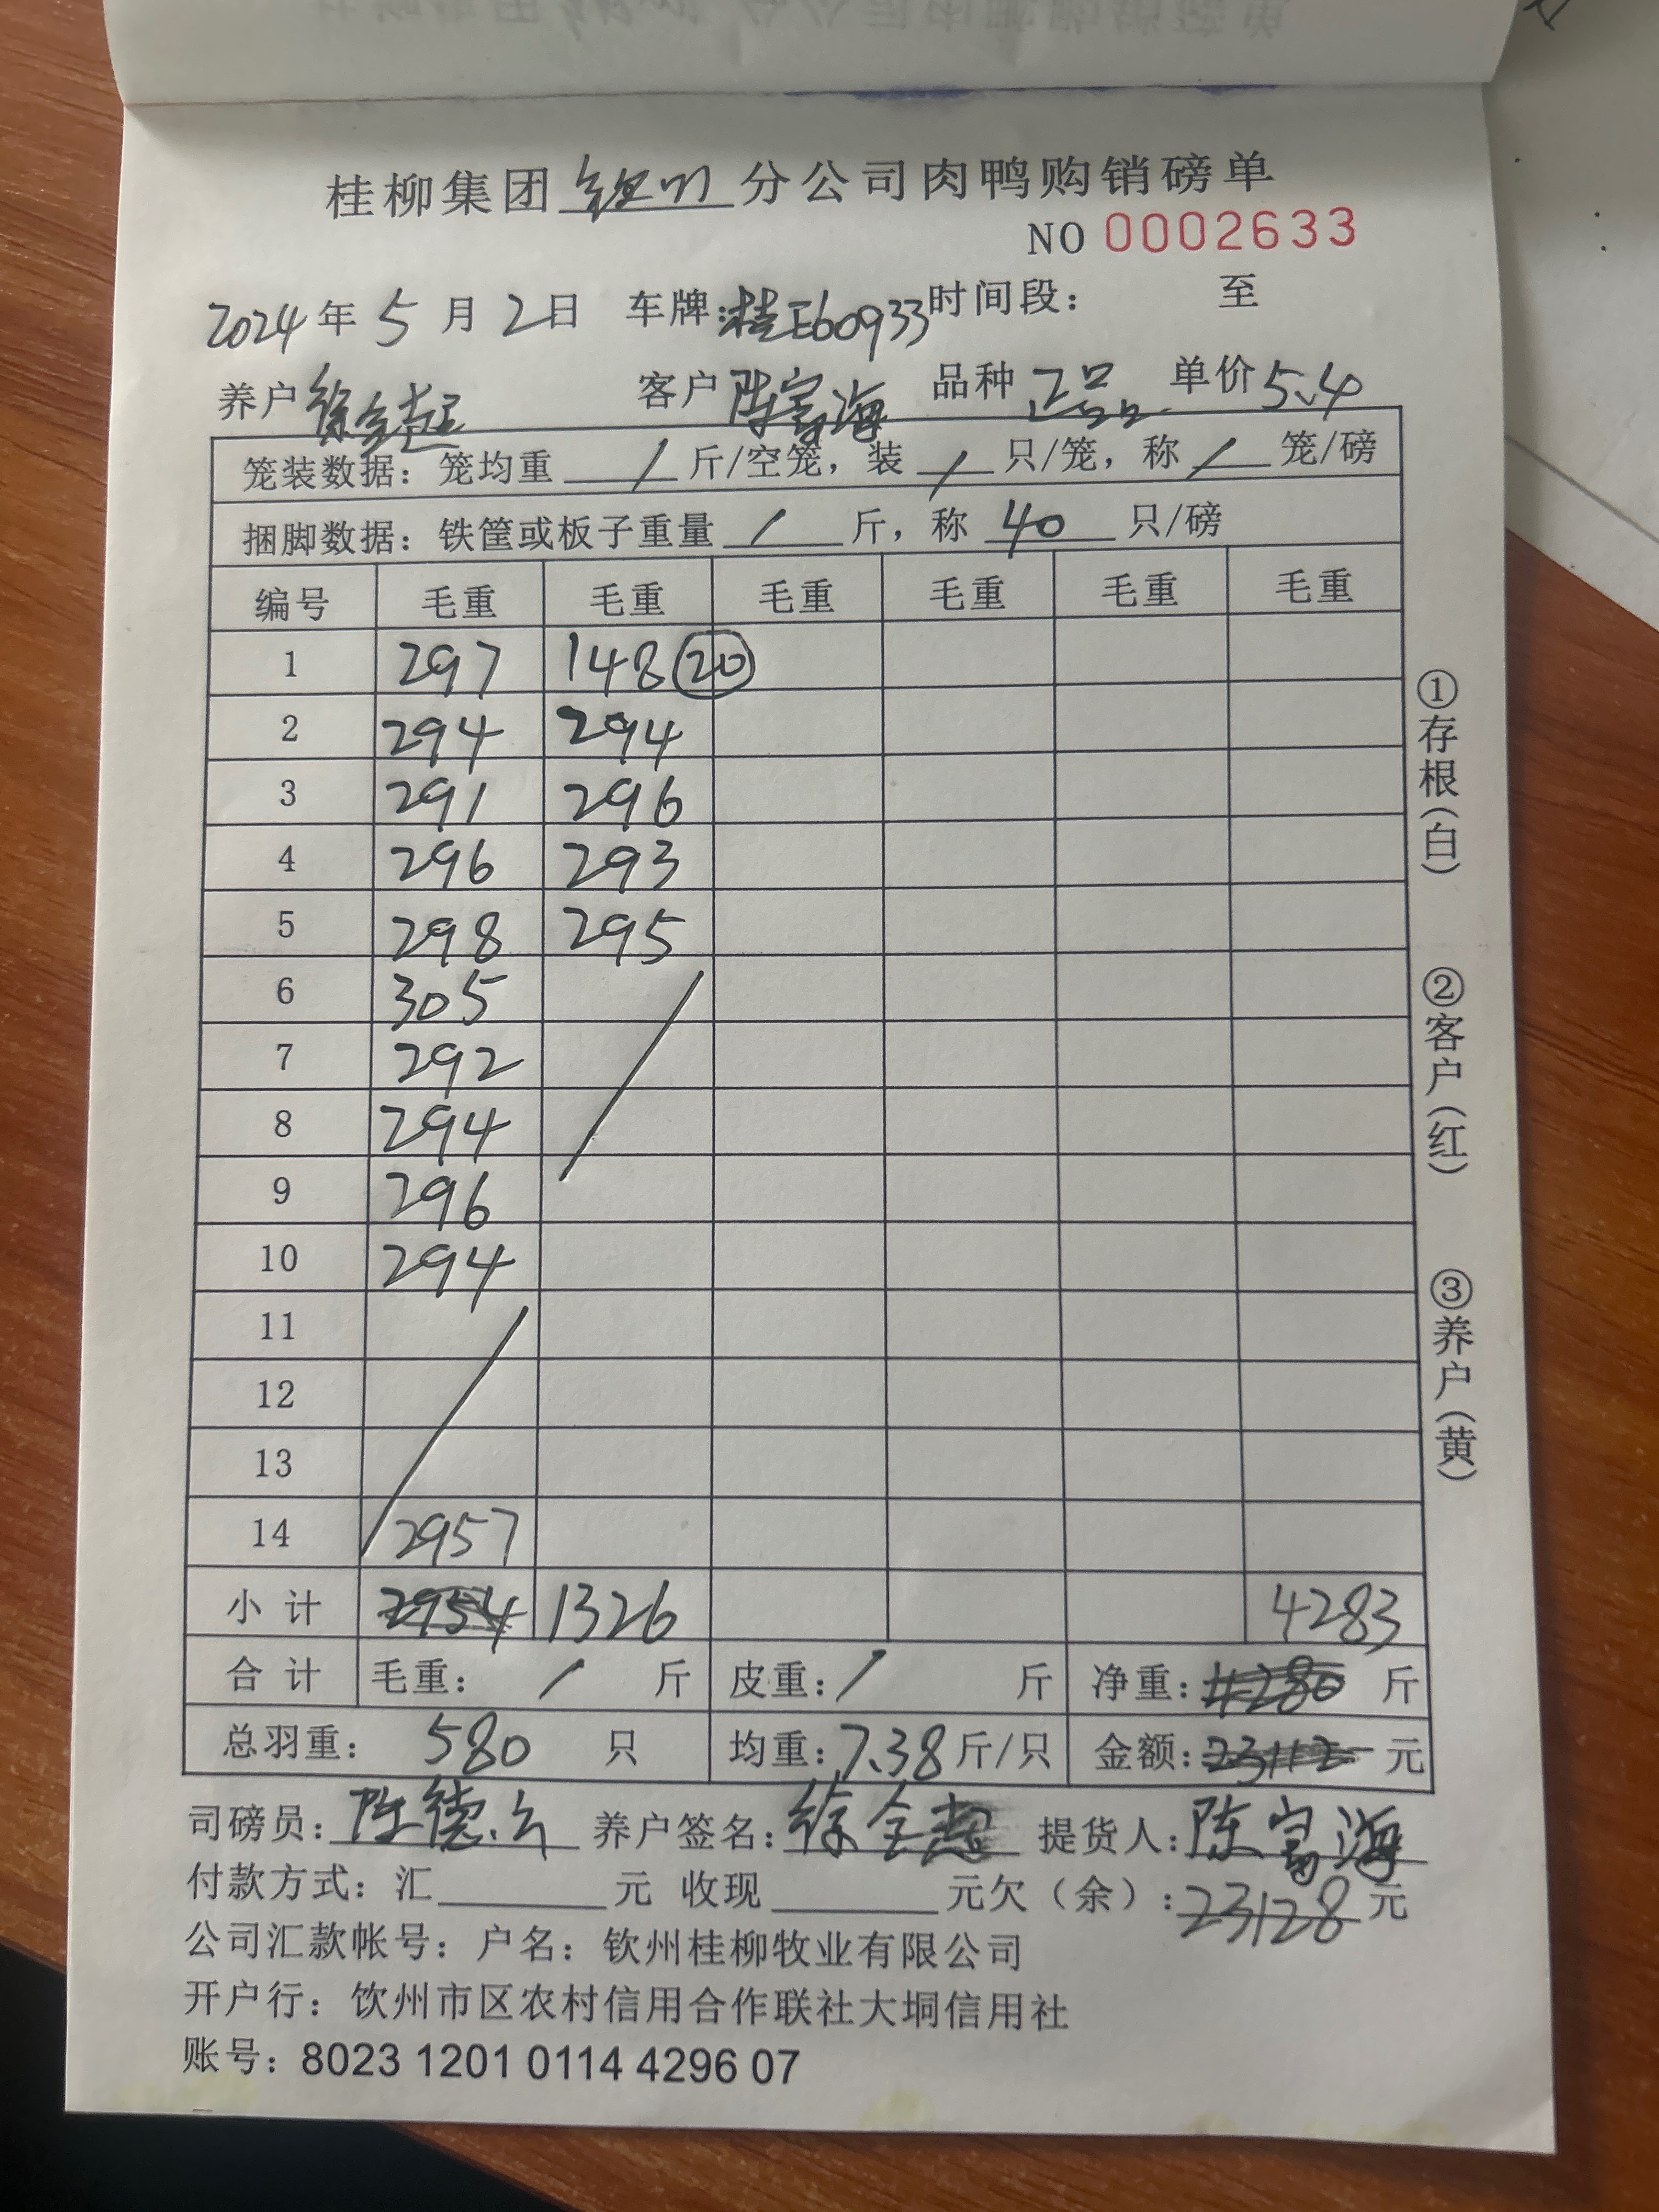 桂柳集团 钦州 分公司肉鸭购销磅单
NO 0002633
2024年5月2日 车牌:桂E60933 时间段: 至
养户 徐全超 客户 陈富海 品种 正品 单价 5.4
笼装数据: 笼均重 / 斤/空笼, 装 / 只/笼, 称 / 笼/磅
捆脚数据: 铁筐或板子重量 / 斤, 称 40 只/磅
编号 毛重 毛重 毛重 毛重 毛重 毛重
1 297 148 ⑳
2 294 294
3 291 296
4 296 293
5 298 295
6 305
7 292
8 294
9 296
10 294
11
12
13
14 2957
小计 2954 1326 4283
合计 毛重: / 斤 皮重: / 斤 净重: 4280 斤
总羽重: 580 只 均重: 7.38 斤/只 金额: 23112 元
司磅员: 陈德 养户签名: 徐全超 提货人: 陈富海
付款方式: 汇 元 收现 元欠(余): 23128 元
公司汇款帐号: 户名: 钦州桂柳牧业有限公司
开户行: 饮州市区农村信用合作联社大垌信用社
账号: 8023 1201 0114 4296 07
①存根(白)
②客户(红)
③养户(黄)